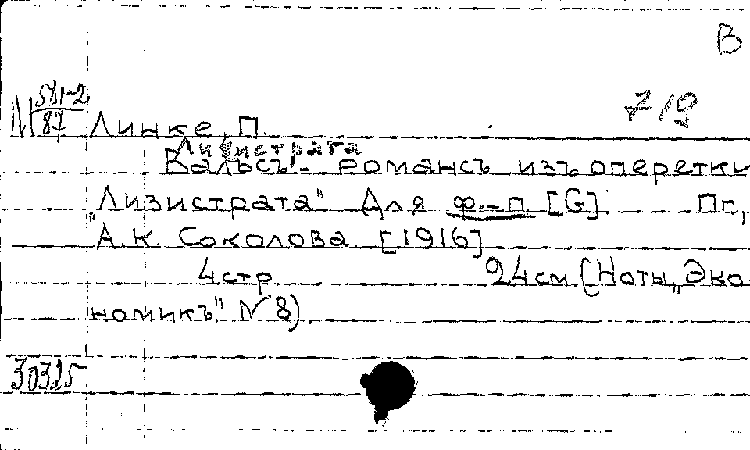 В
М 581-2/87
719
Линке, П.
Лизистрата
Вальсъ-романсъ изъ оперетки
"Лизистрата" Для ф.-п. [G]. Пг,
А.К. Соколова [1916]
4 стр. 24 см (Ноты "Эко
номикъ" № 8).
30325